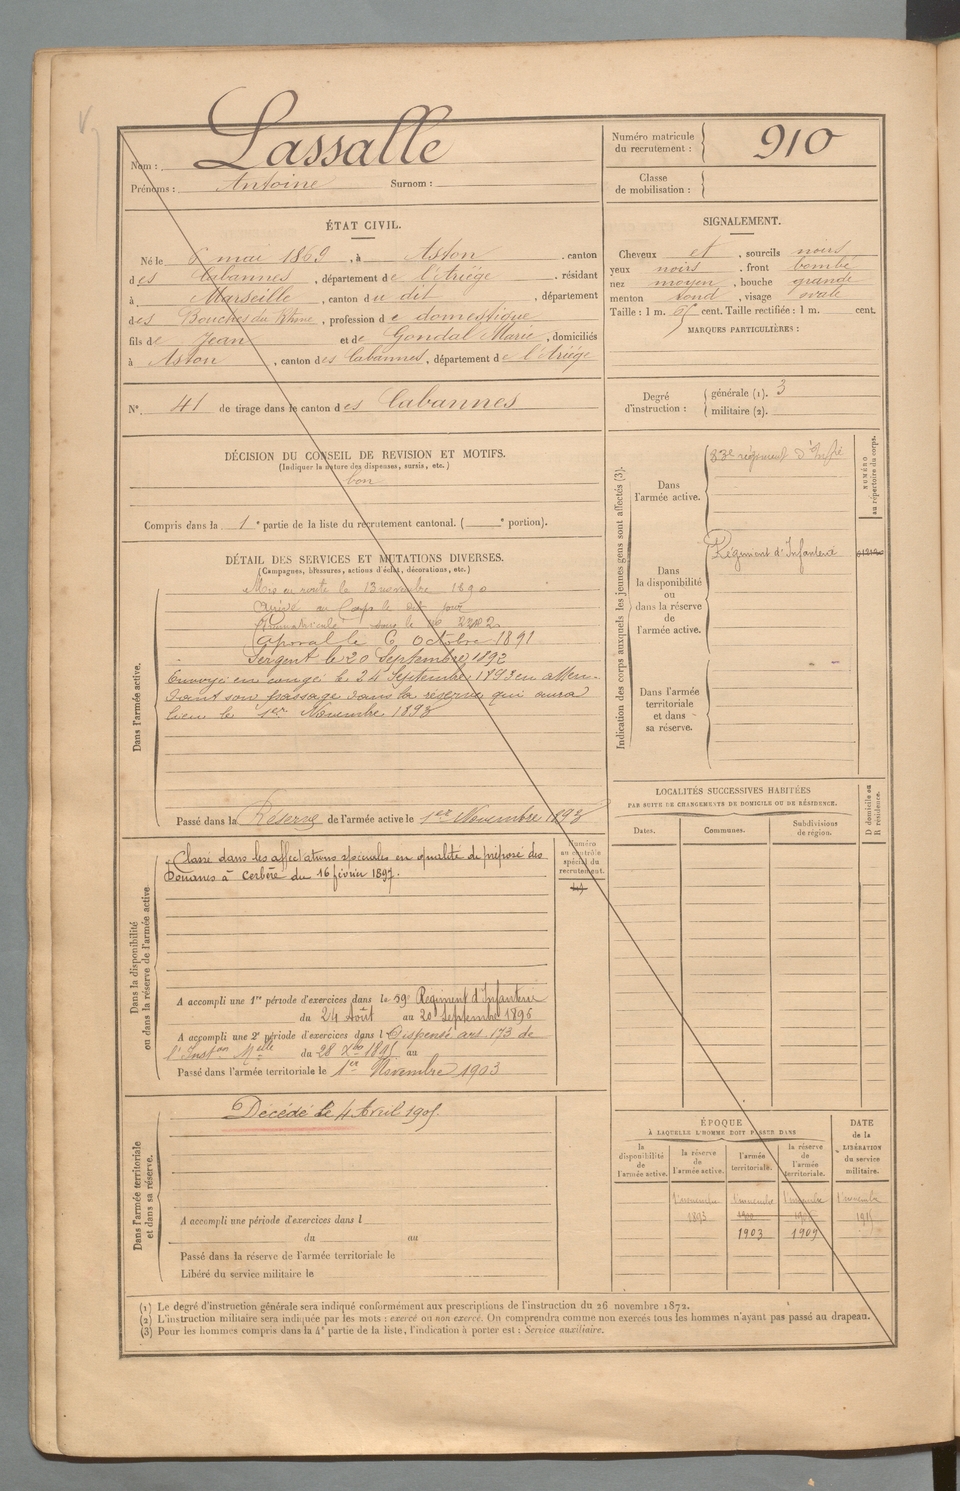 Nom : Lassalle
Prénoms : Antoine Surnom :
Numéro matricule du recrutement : 910
Classe de mobilisation :
ÉTAT CIVIL.
Né le 6 mai 1869, à Aston, canton
des Cabannes, département de l'Ariége, résidant
à Marseille, canton du dit, département
des Bouches du Rhône, profession de domestique
fils de Jean et de Gondal Marie, domiciliés
à Aston, canton des Cabannes, département de l'Ariége
N° 41 de tirage dans le canton des Cabannes
SIGNALEMENT.
Cheveux et, sourcils noirs
yeux noirs, front bombé
nez moyen, bouche grande
menton rond, visage ovale
Taille : 1 m. 65 cent. Taille rectifiée : 1 m. cent.
MARQUES PARTICULIÈRES :
Degré d'instruction : générale (1). 3
militaire (2).
DÉCISION DU CONSEIL DE REVISION ET MOTIFS.
(Indiquer la nature des dispenses, sursis, etc.)
bon
Compris dans la 1e partie de la liste du recrutement cantonal. (e portion).
DÉTAIL DES SERVICES ET MUTATIONS DIVERSES.
(Campagnes, blessures, actions d'éclat, décorations, etc.)
Dans l'armée active.
Mis en route le 13 novembre 1890
Arrivé au Corps le dit jour
Immatriculé sous le n°
Caporal le 6 Octobre 1891
Sergent le 20 Septembre 1892
Envoyé en congé le 24 Septembre 1893 en atten-
dant son passage dans la réserve qui aura
lieu le 1er Novembre 1893
Passé dans la Réserve de l'armée active le 1er Novembre 1893
Indication des corps auxquels les jeunes gens sont affectés (3).
Dans l'armée active.
83e régiment d'Infrie
NUMÉRO au répertoire du corps.
Dans la disponibilité ou dans la réserve de l'armée active.
Régiment d'Infanterie
Dans l'armée territoriale et dans sa réserve.
LOCALITÉS SUCCESSIVES HABITÉES
PAR SUITE DE CHANGEMENTS DE DOMICILE OU DE RÉSIDENCE.
Dates. Communes. Subdivisions de région. D domicile ou R résidence.
Dans la disponibilité ou dans la réserve de l'armée active
Numéro au contrôle spécial du recrutement.
Classé dans les affectations spéciales en qualité de préposé des
Douanes à Cerbère du 16 février 1897.
A accompli une 1re période d'exercices dans le 59e Régiment d'Infanterie
du 24 Août au 20 Septembre 1896
A accompli une 2e période d'exercices dans l Dispensé art. 173 de
l'Inston Mlle du 28 Xbre 1895 au
Passé dans l'armée territoriale le 1er Novembre 1903
Dans l'armée territoriale et dans sa réserve.
Décédé le 4 Avril 1905.
A accompli une période d'exercices dans l
du au
Passé dans la réserve de l'armée territoriale le
Libéré du service militaire le
ÉPOQUE
À LAQUELLE L'HOMME DOIT PASSER DANS
la disponibilité de l'armée active.
la réserve de l'armée active.
l'armée territoriale.
la réserve de l'armée territoriale.
DATE de la LIBÉRATION du service militaire.
1 novembre 1 novembre 1 novembre 1 novembre
1893 1900 1915
1903 1909
(1) Le degré d'instruction générale sera indiqué conformément aux prescriptions de l'instruction du 26 novembre 1872.
(2) L'instruction militaire sera indiquée par les mots : exercé ou non exercé. On comprendra comme non exercés tous les hommes n'ayant pas passé au drapeau.
(3) Pour les hommes compris dans la 4e partie de la liste, l'indication à porter est : Service auxiliaire.